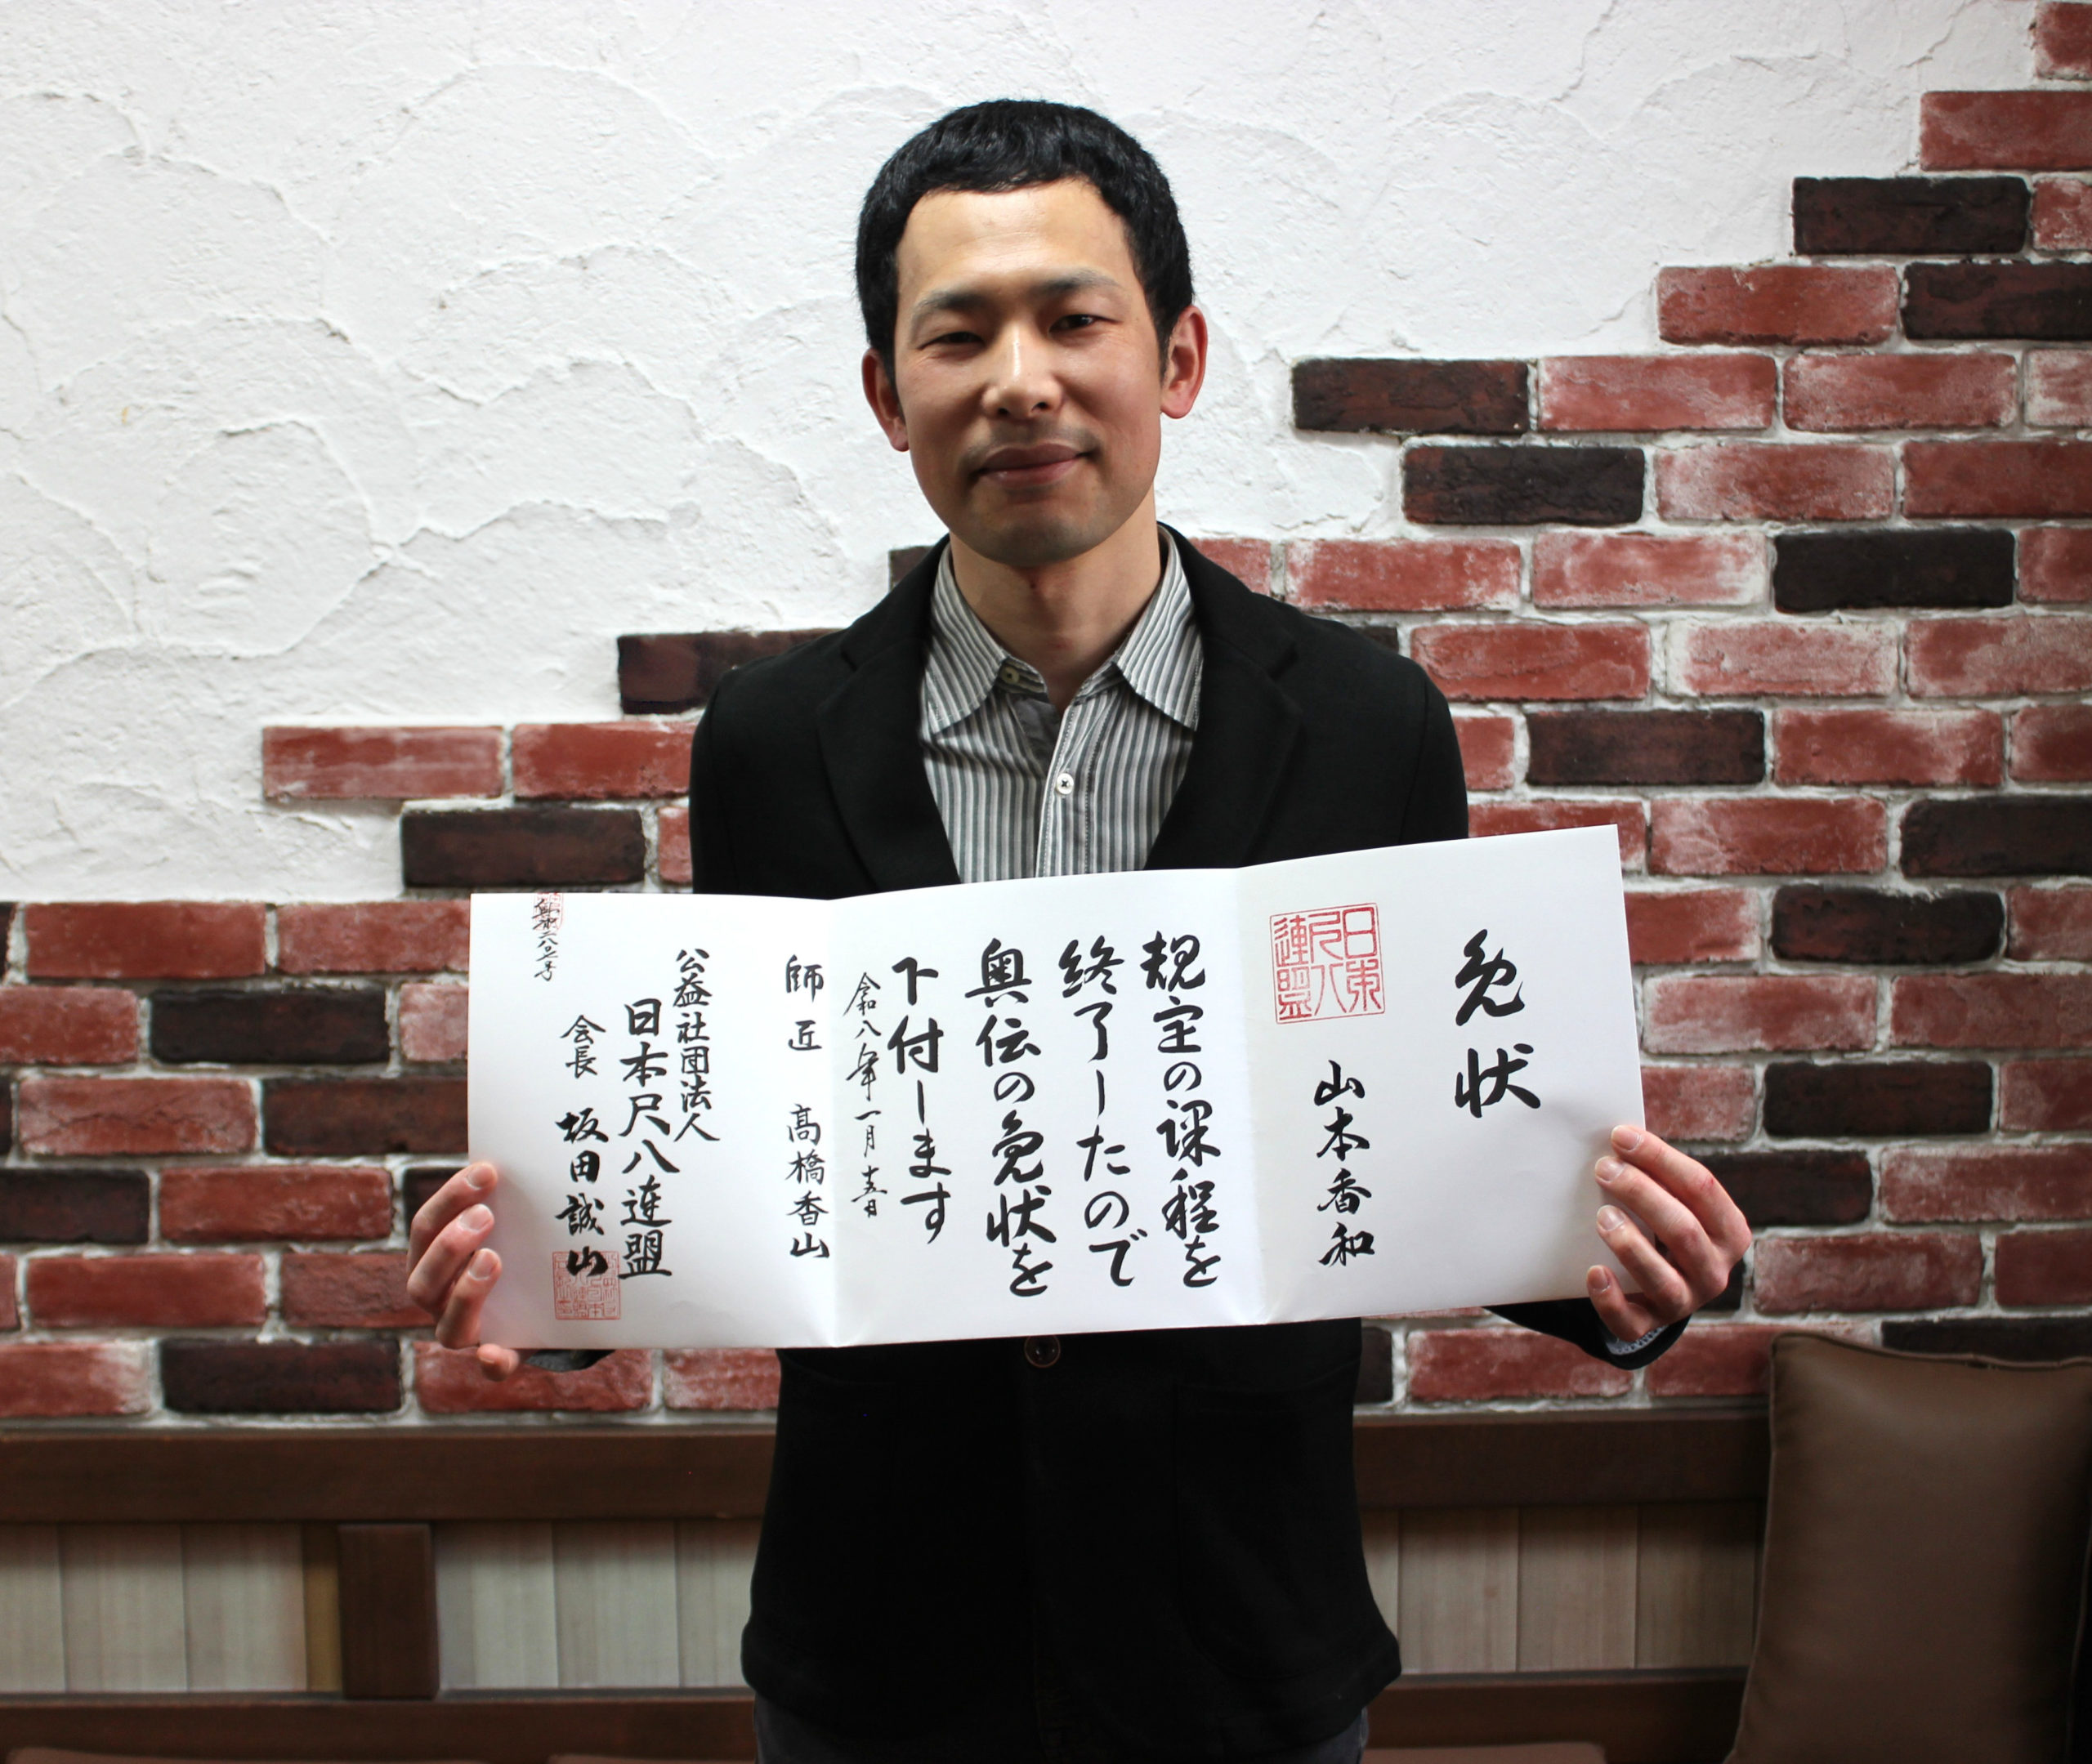 免状
山本香和
日東
尺八
連盟
規定の課程を
終了したので
奥伝の免状を
下付します
令和八年一月十五日
師匠 髙橋香山
公益社団法人
日本尺八連盟
会長 坂田誠山